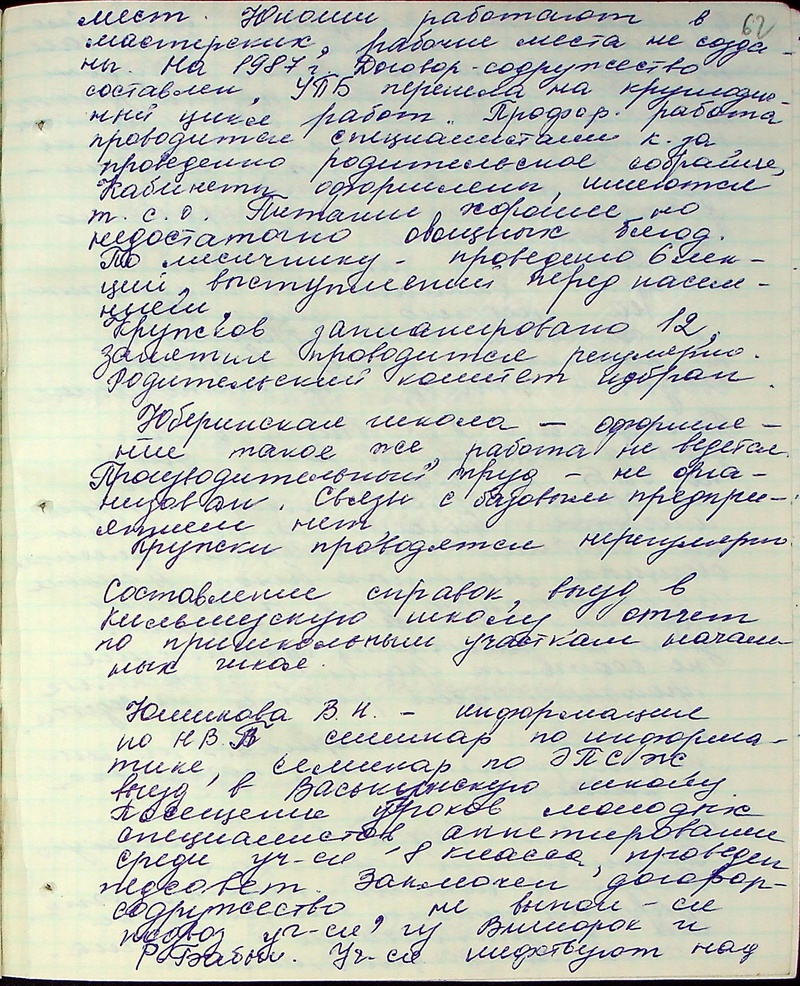 62
мест. Юноши работают в
мастерских, рабочие места не созда-
ны. На 1987 г. Договор-содружество
составлен, УПБ перешла на круглодич-
ный цикл работ. Профор. работа
проводится специалистами к-за
проведено родительское собрание,
Кабинеты оформлены, имеются
т. с. о. Питание хорошее но
недостаточно овощных блюд.
По месячнику - проведено 6 лек-
ций, выступлений перед насел-
нием.
Кружков запланировано 12,
занятия проводятся регулярно.
Родительский комитет избран.
Юберинская школа — оформле-
ние такое же, работа не ведется.
Производительный труд - не орга-
низован. Связи с базовым предпри-
ятием нет
Кружки проводятся нерегулярно.
Составление справок, выезд в
Кильмезскую школу отчет
по пришкольным участкам началь-
ных школ.
Юшкова В. Н. - информация
по НВП семинар по информа-
тике, семинар по ЭПСЖ
выезд в Васькинскую школу.
Посещение уроков молодых
специалистов, анкетирование
среди уч-ся 8 класса, проведен
педсовет. Заключен договор-
содружество не выпол-ся
подвоз уч-ся из Вишорок и
Р-Бабьи. Уч-ся шефствуют над